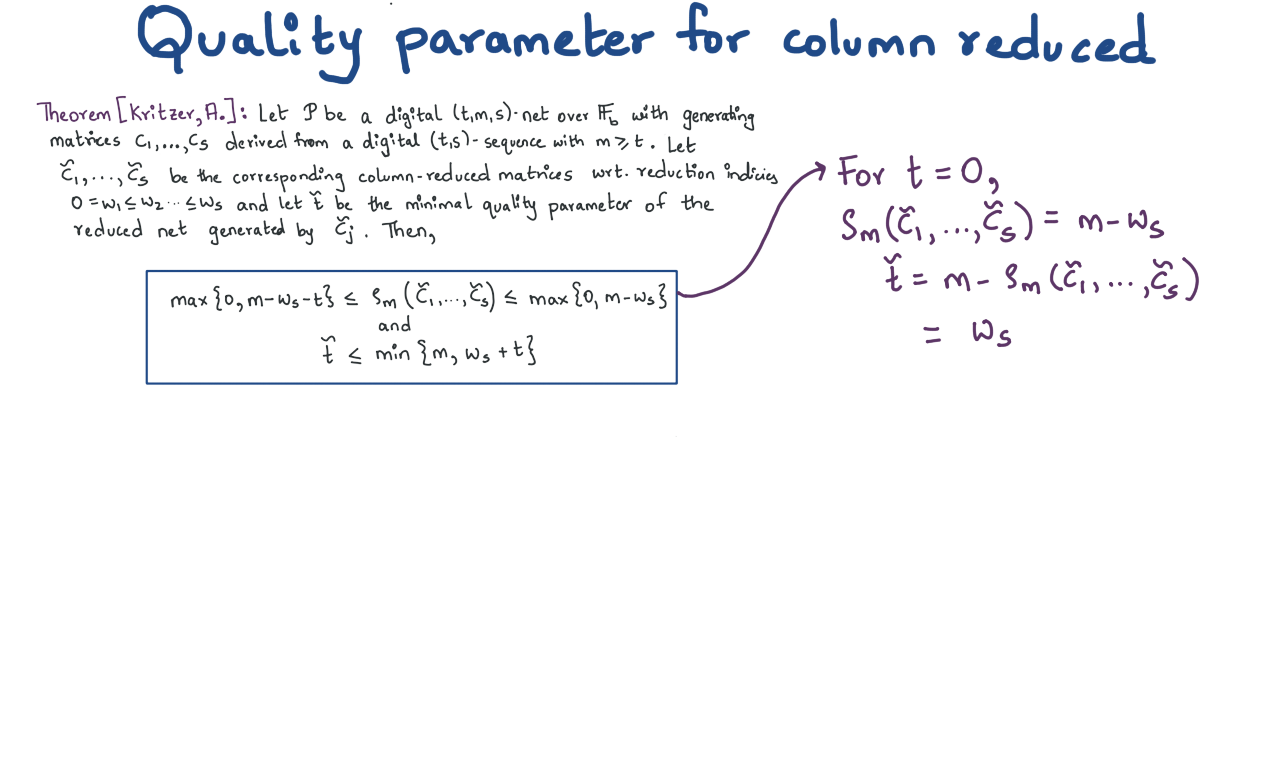 Quality parameter for column reduced
Theorem [Kritzer, A.]: Let P be a digital (t,m,s)-net over 𝔽_b with generating
matrices C₁,...,C_s derived from a digital (t,s)-sequence with m ≥ t. Let
C̆₁,...,C̆_s be the corresponding column-reduced matrices wrt. reduction indicies
0 = w₁ ≤ w₂ ... ≤ w_s and let t̆ be the minimal quality parameter of the
reduced net generated by C̆_j. Then,
max{0, m-w_s-t} ≤ ρ_m(C̆₁,...,C̆_s) ≤ max{0, m-w_s}
and
t̆ ≤ min{m, w_s + t}
For t = 0,
ρ_m(C̆₁,...,C̆_s) = m-w_s
t̆ = m - ρ_m(C̆₁,...,C̆_s)
= w_s